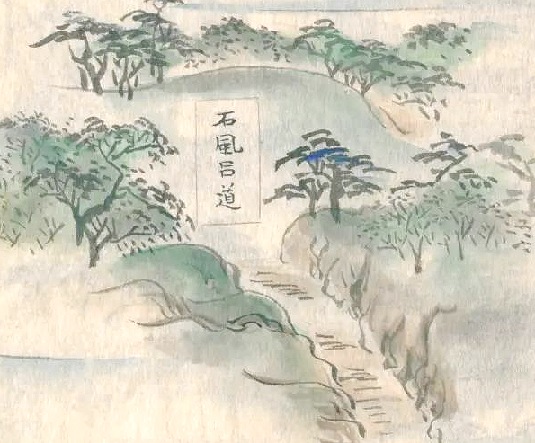 石風呂道